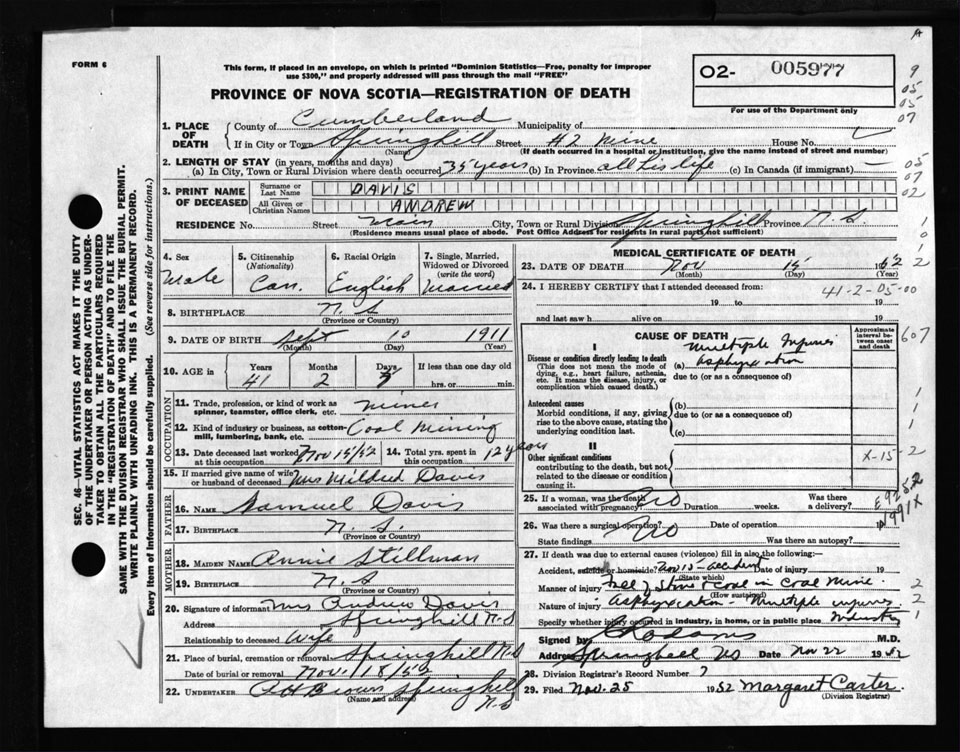 A
FORM 6
This form, if placed in an envelope, on which is printed "Dominion Statistics—Free, penalty for improper
use $300," and properly addressed will pass through the mail "FREE"
PROVINCE OF NOVA SCOTIA—REGISTRATION OF DEATH
O2- 005977
For use of the Department only
9
05
05
07
05
07
02
1. PLACE OF DEATH County of Cumberland Municipality of
If in City or Town Springhill Street #2 Mine House No.
(Name) (If death occurred in a hospital or institution, give the name instead of street and number)
2. LENGTH OF STAY (in years, months and days)
(a) In City, Town or Rural Division where death occurred 35 years (b) In Province all his life (c) In Canada (if immigrant)
3. PRINT NAME OF DECEASED Surname or Last Name DAVIS
All Given or Christian Names ANDREW
RESIDENCE No. Street Main City, Town or Rural Division Springhill Province N.S.
(Residence means usual place of abode. Post Office Address for residents in rural parts not sufficient)
4. Sex Male
5. Citizenship (Nationality) Can.
6. Racial Origin English
7. Single, Married, Widowed or Divorced (write the word) Married
8. BIRTHPLACE N.S
(Province or Country)
9. DATE OF BIRTH Sept 10 1911
(Month) (Day) (Year)
10. AGE in Years 41 Months 2 Days 5 If less than one day old
hrs. or min.
OCCUPATION
11. Trade, profession or kind of work as Miner
spinner, teamster, office clerk, etc.
12. Kind of industry or business, as cotton- Coal Mining
mill, lumbering, bank, etc.
13. Date deceased last worked at this occupation Nov 15/52 14. Total yrs. spent in this occupation 12 years
15. If married give name of wife or husband of deceased Mrs Mildred Davis
FATHER
16. NAME Samuel Davis
17. BIRTHPLACE N.S.
(Province or Country)
MOTHER
18. MAIDEN NAME Annie Stillman
19. BIRTHPLACE N.S
(Province or Country)
20. Signature of informant Mrs Andrew Davis
Address Springhill N.S
Relationship to deceased Wife
21. Place of burial, cremation or removal Springhill N.S
Date of burial or removal Nov. 18/52
22. UNDERTAKER Brown Springhill
(Name and address) N.S
MEDICAL CERTIFICATE OF DEATH
23. DATE OF DEATH Nov 15 1952
(Month) (Day) (Year)
24. I HEREBY CERTIFY that I attended deceased from:
41-2-05-00
19 to 19
and last saw h alive on 19
CAUSE OF DEATH
Approximate interval between onset and death
607
I
Disease or condition directly leading to death
(This does not mean the mode of dying, e.g., heart failure, asthenia, etc. It means the disease, injury, or complication which caused death.)
(a) Multiple Injuries
Asphyxiation
due to (or as a consequence of)
Antecedent causes
Morbid conditions, if any, giving rise to the above cause, stating the underlying condition last.
(b)
due to (or as a consequence of)
(c)
II
Other significant conditions
contributing to the death, but not related to the disease or condition causing it.
X-15-2
25. If a woman, was the death associated with pregnancy? No Duration weeks. Was there a delivery?
26. Was there a surgical operation? No Date of operation 19
State findings Was there an autopsy?
991X
27. If death was due to external causes (violence) fill in also the following:—
Accident, suicide or homicide? Nov 15-accident Date of injury 19
(State which)
Manner of injury fall of stone & coal in Coal Mine.
(How sustained)
Nature of injury Asphyxiation - Multiple injuries
Specify whether injury occurred in industry, in home, or in public place Industry
Signed by M.D.
Address Springhill NS Date Nov 22 1952
28. Division Registrar's Record Number
29. Filed Nov. 25 1952 Margaret Carter.
(Division Registrar)
SEC. 46—VITAL STATISTICS ACT MAKES IT THE DUTY
OF THE UNDERTAKER OR PERSON ACTING AS UNDER-
TAKER TO OBTAIN ALL THE PARTICULARS REQUIRED
IN THE "REGISTRATION OF DEATH" AND TO FILE THE
SAME WITH THE DIVISION REGISTRAR WHO SHALL ISSUE THE BURIAL PERMIT.
WRITE PLAINLY WITH UNFADING INK. THIS IS A PERMANENT RECORD.
Every item of information should be carefully supplied. (See reverse side for instructions.)